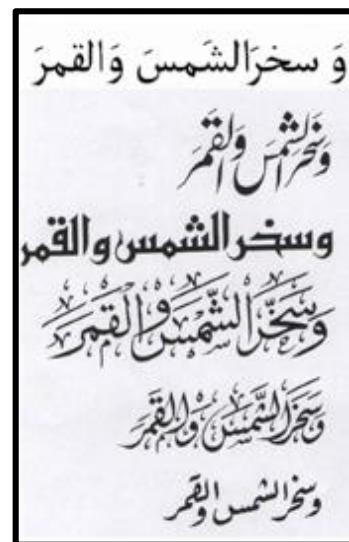 وَ سخرَالشَمسَ وَالقمرَ
وَسَخَرَ الشَمسَ وَالقَمَرَ
وسخر الشمس والقمر
وَسَخَّرَ الشَّمْسَ وَالْقَمَرَ
وَسَخَرَ الشَّمْسَ وَالقَمَرَ
وسخر الشمس والقمر